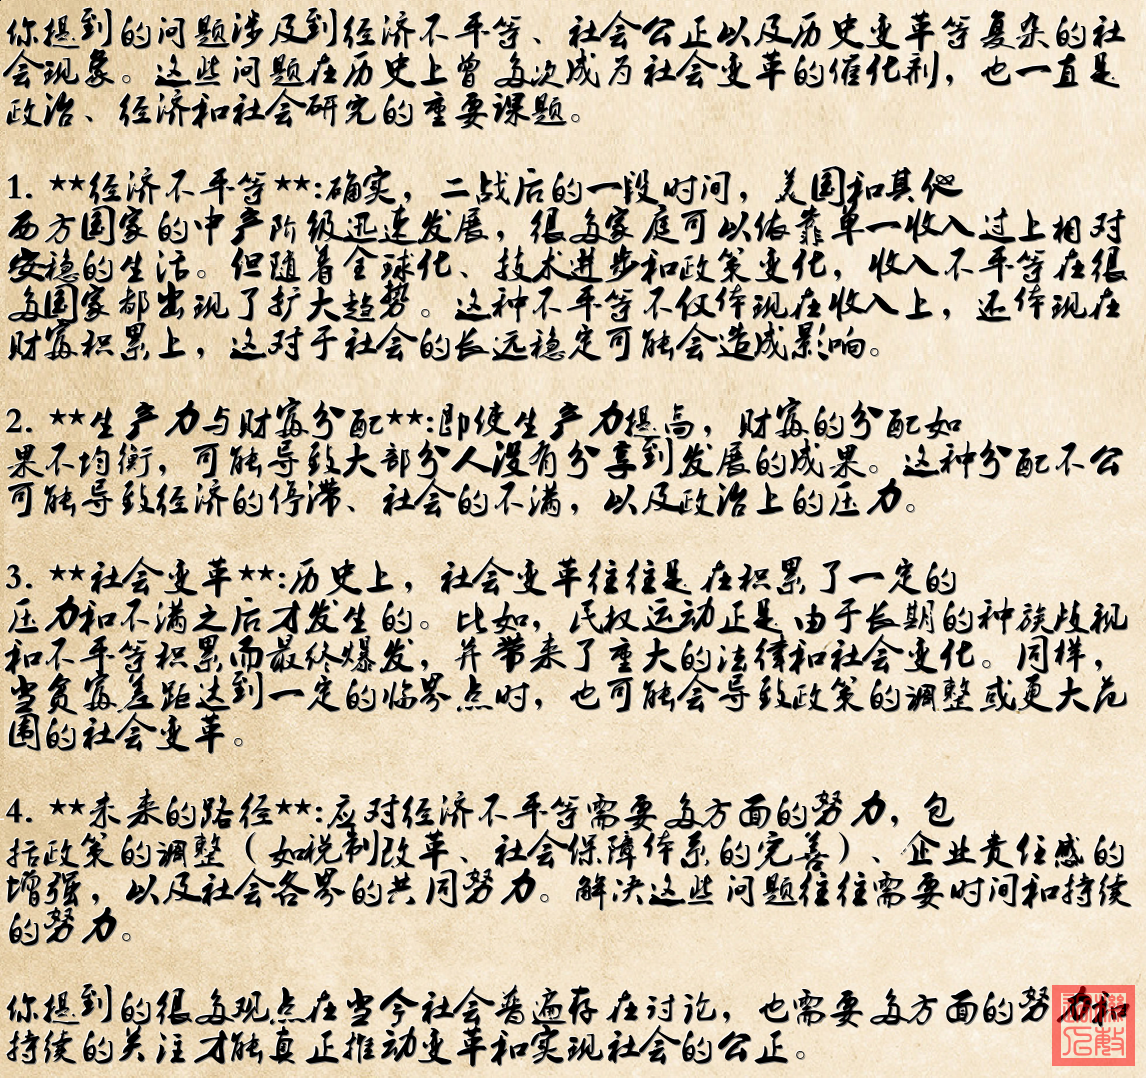 你提到的问题涉及到经济不平等、社会公正以及历史变革等复杂的社
会现象。这些问题在历史上曾多次成为社会变革的催化剂，也一直是
政治、经济和社会研究的重要课题。
1. **经济不平等**:确实，二战后的一段时间，美国和其他
西方国家的中产阶级迅速发展，很多家庭可以依靠单一收入过上相对
安稳的生活。但随着全球化、技术进步和政策变化，收入不平等在很
多国家都出现了扩大趋势。这种不平等不仅体现在收入上，还体现在
财富积累上，这对于社会的长远稳定可能会造成影响。
2. **生产力与财富分配**:即使生产力提高，财富的分配如
果不均衡，可能导致大部分人没有分享到发展的成果。这种分配不公
可能导致经济的停滞、社会的不满，以及政治上的压力。
3. **社会变革**:历史上，社会变革往往是在积累了一定的
压力和不满之后才发生的。比如，民权运动正是由于长期的种族歧视
和不平等积累而最终爆发，并带来了重大的法律和社会变化。同样，
当贫富差距达到一定的临界点时，也可能会导致政策的调整或更大范
围的社会变革。
4. **未来的路径**:应对经济不平等需要多方面的努力，包
括政策的调整（如税制改革、社会保障体系的完善）、企业责任感的
增强，以及社会各界的共同努力。解决这些问题往往需要时间和持续
的努力。
你提到的很多观点在当今社会普遍存在讨论，也需要多方面的努力和
持续的关注才能真正推动变革和实现社会的公正。